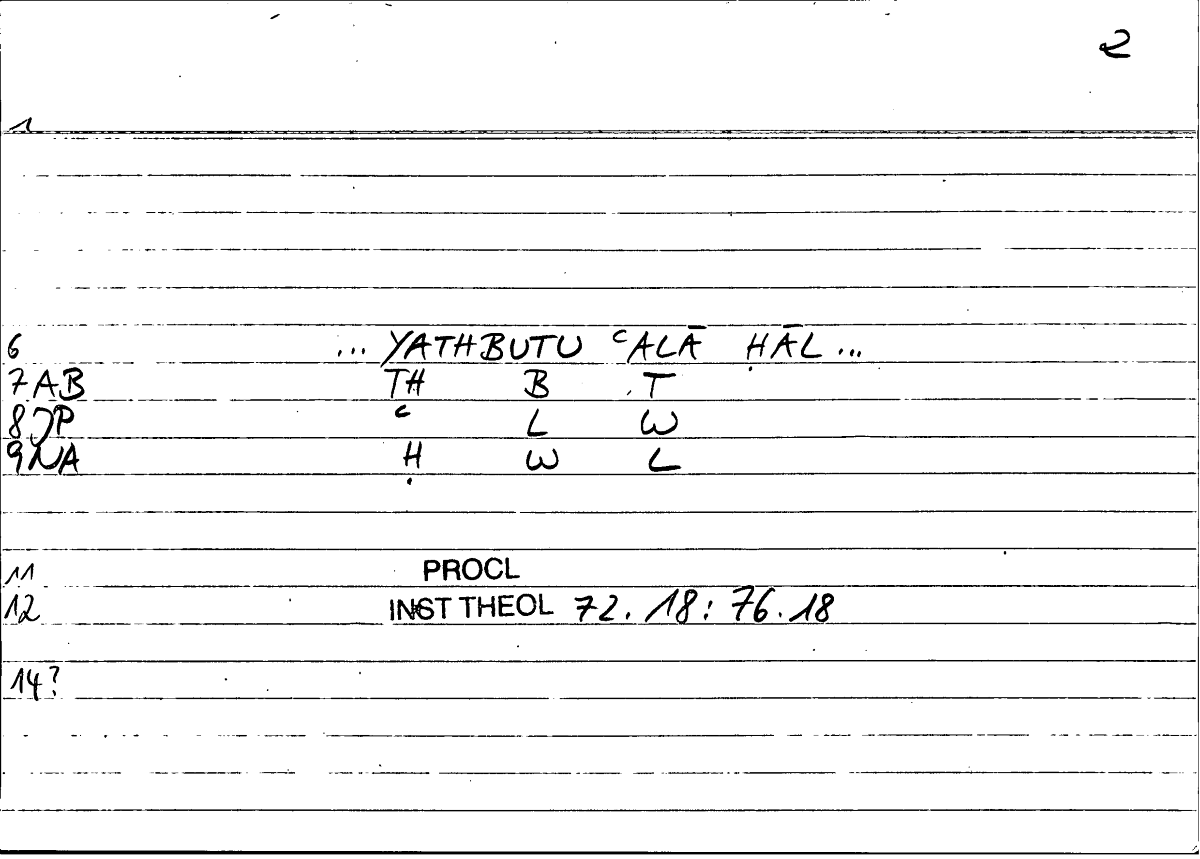 2
1
6 ... YATHBUTU ʿALĀ ḤĀL ...
7AB TH B T
8JP ʿ L W
9NA Ḥ W L
11 PROCL
12 INST THEOL 72. 18: 76. 18
14?